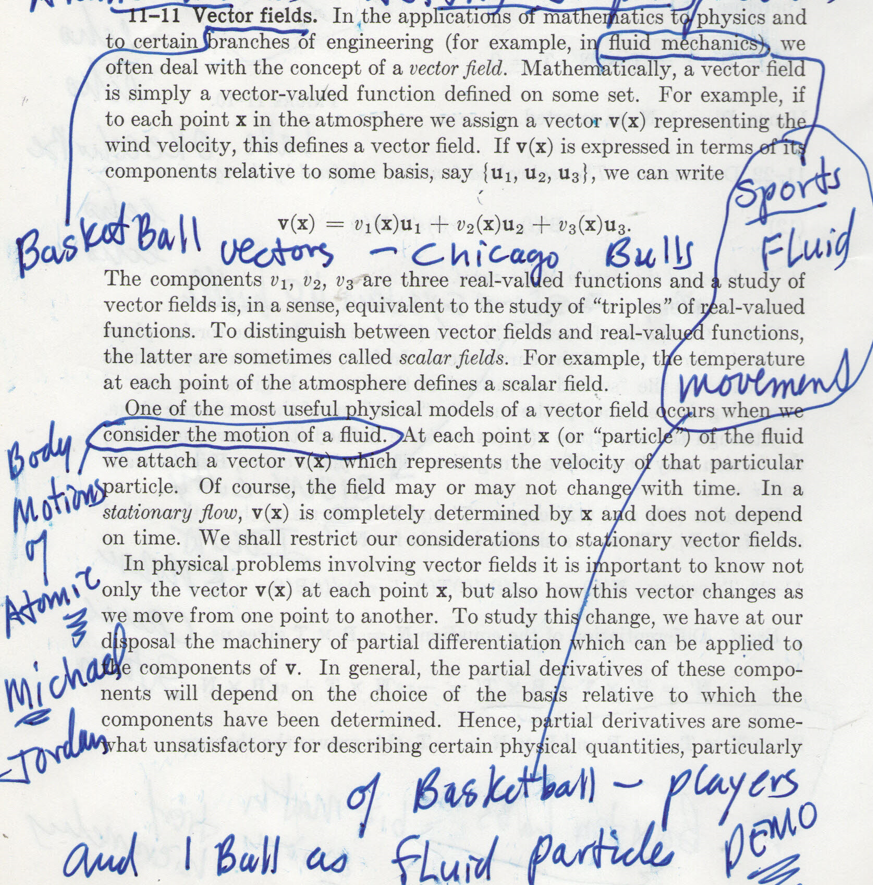 11–11 Vector fields. In the applications of mathematics to physics and
to certain branches of engineering (for example, in fluid mechanics), we
often deal with the concept of a vector field. Mathematically, a vector field
is simply a vector-valued function defined on some set. For example, if
to each point x in the atmosphere we assign a vector v(x) representing the
wind velocity, this defines a vector field. If v(x) is expressed in terms of its
components relative to some basis, say {u₁, u₂, u₃}, we can write
sports
v(x) = v₁(x)u₁ + v₂(x)u₂ + v₃(x)u₃.
BasketBall vectors – Chicago Bulls
FLuid
The components v₁, v₂, v₃ are three real-valued functions and a study of
vector fields is, in a sense, equivalent to the study of “triples” of real-valued
functions. To distinguish between vector fields and real-valued functions,
the latter are sometimes called scalar fields. For example, the temperature
at each point of the atmosphere defines a scalar field.
movement
One of the most useful physical models of a vector field occurs when we
consider the motion of a fluid. At each point x (or “particle”) of the fluid
we attach a vector v(x) which represents the velocity of that particular
particle. Of course, the field may or may not change with time. In a
stationary flow, v(x) is completely determined by x and does not depend
on time. We shall restrict our considerations to stationary vector fields.
Body
Motions
of
Atomic
Michael
Jordan
In physical problems involving vector fields it is important to know not
only the vector v(x) at each point x, but also how this vector changes as
we move from one point to another. To study this change, we have at our
disposal the machinery of partial differentiation which can be applied to
the components of v. In general, the partial derivatives of these compo-
nents will depend on the choice of the basis relative to which the
components have been determined. Hence, partial derivatives are some-
what unsatisfactory for describing certain physical quantities, particularly
of Basketball – players
and 1 Ball as FLuid particles DEMO